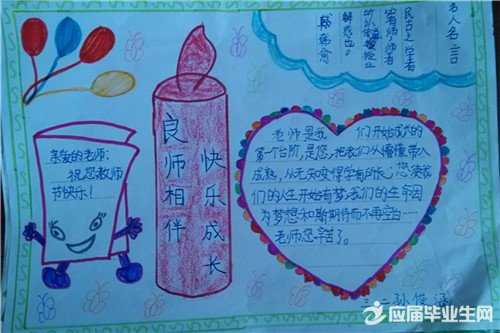 名人名言
亲爱的老师:
祝您教师
节快乐!
良师相伴
快乐成长
老师是我们开始成功的
第一个台阶,是您,把我们从懵懂带入
成熟,从无知变得学有所长,您使我
们的人生开始有梦,我们的生命因
为梦想和期待而不再空白……
老师您辛苦了。
应届毕业生网
YJBYS.COM